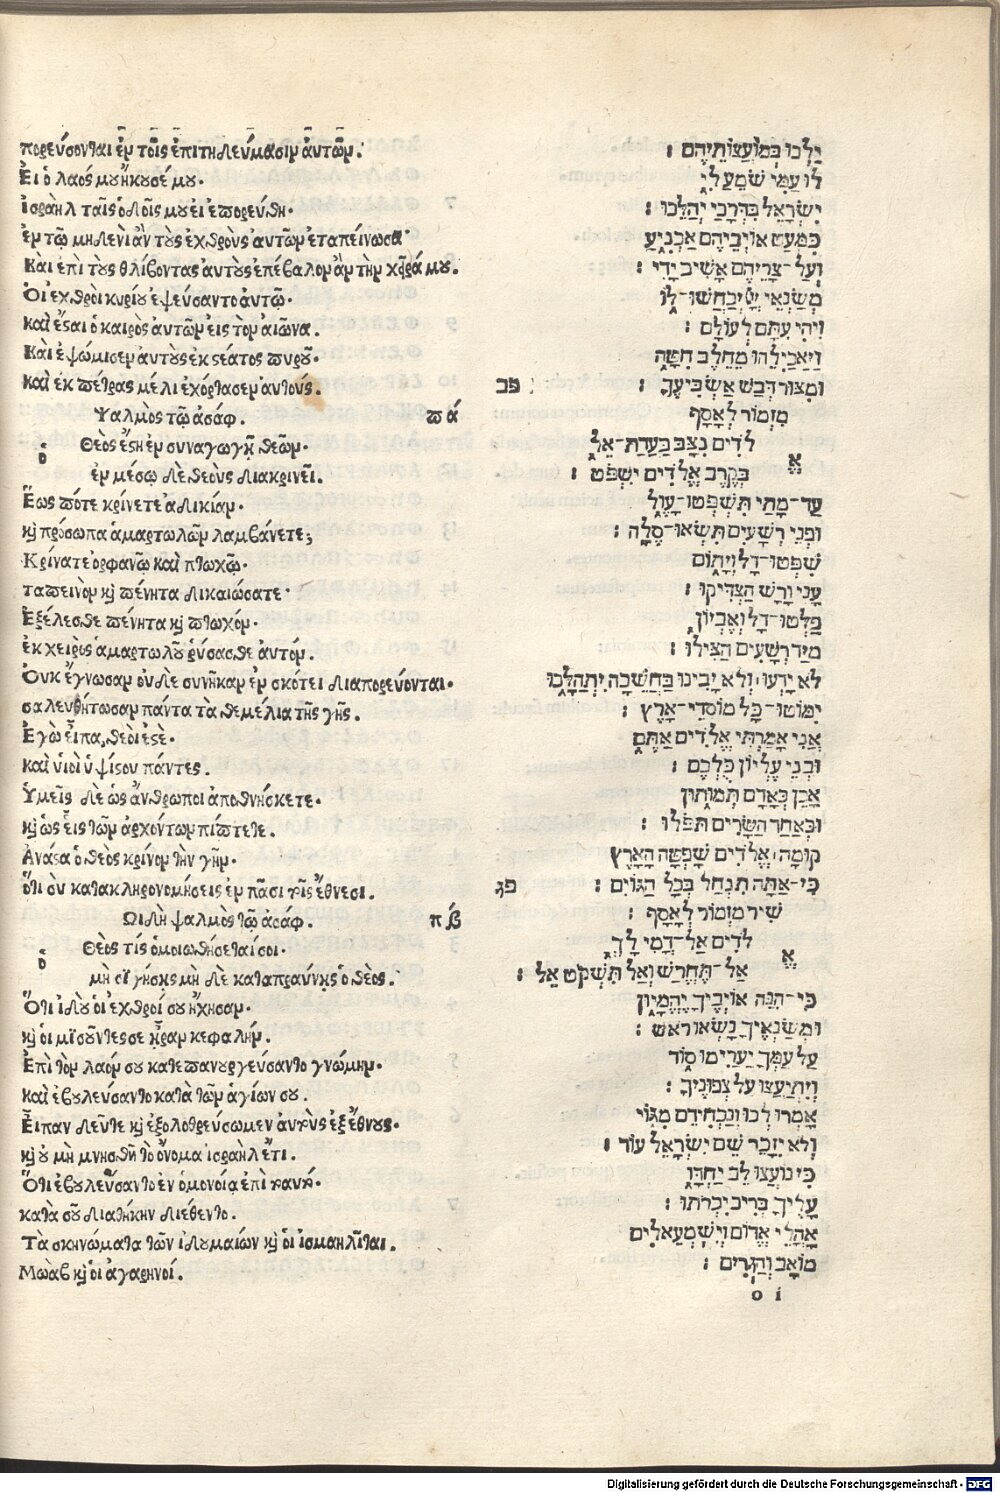 πορεύσονται ἐν τοῖς ἐπιτηδεύμασιν ἀυτῶν.
Ἐι ὁ λαός μου ἤκουσέ μου.
ἰσραὴλ ταῖς ὁδοῖς μου ει ἐπορεύθη.
ἐν τῷ μηδενὶ ἂν τοὺς ἐχθροὺς ἀυτῶν ἐταπείνωσα.
Καὶ ἐπὶ τοὺς θλίβοντας ἀυτοὺς ἐπέβαλον ἂν τὴν χεῖρά μου.
Ὁι ἐχθροὶ κυρίου ἐψεύσαντο ἀυτῷ.
καὶ ἔσται ὁ καιρὸς ἀυτῶν εἰς τὸν αἰῶνα.
Καὶ ἐψώμισεν ἀυτοὺς ἐκ στέατος πυροῦ.
καὶ ἐκ πέτρας μέλι ἐχόρτασεν ἀυτούς.
Ψαλμὸς τῷ ἀσάφ. πά
ὁ Θεὸς ἔστη ἐν συναγωγῇ θεῶν.
ἐν μέσῳ δὲ θεοὺς διακρινεῖ.
Ἕως πότε κρίνετε ἀδικίαν.
καὶ πρόσωπα ἁμαρτωλῶν λαμβάνετε;
Κρίνατε ὀρφανῷ καὶ πτωχῷ.
ταπεινὸν καὶ πένητα δικαιώσατε.
Ἐξέλεσθε πένητα καὶ πτωχὸν.
ἐκ χειρὸς ἁμαρτωλοῦ ῥύσασθε ἀυτόν.
Ὀυκ ἔγνωσαν ὀυδὲ συνῆκαν ἐν σκότει διαπορεύονται.
σαλευθήτωσαν πάντα τὰ θεμέλια τῆς γῆς.
Ἐγὼ εἶπα, θεοὶ ἐστὲ.
καὶ υἱοὶ ὑψίστου πάντες.
Ὑμεῖς δὲ ὡς ἄνθρωποι ἀποθνήσκετε.
καὶ ὡς εἷς τῶν ἀρχόντων πίπτετε.
Ἀνάστα ὁ θεὸς κρίνον τὴν γῆν.
ὅτι σὺ κατακληρονομήσεις ἐν πᾶσι τοῖς ἔθνεσι.
Ὠιδὴ ψαλμὸς τῷ ἀσάφ. πβ́
ὁ Θεὸς τίς ὁμοιωθήσεταί σοι.
μὴ σιγήσῃς μὴ δὲ καταπραΰνῃς ὁ θεὸς.
Ὅτι ἰδοὺ ὁι ἐχθροί σου ἤχησαν.
καὶ ὁι μισοῦντες σε ἦραν κεφαλήν.
Ἐπὶ τὸν λαόν σου κατεπανουργεύσαντο γνώμην.
καὶ ἐβουλεύσαντο κατὰ τῶν ἁγίων σου.
Εἶπαν δεῦτε καὶ ἐξολοθρεύσωμεν ἀυτοὺς ἐξ ἔθνους.
καὶ ὀυ μὴ μνησθῇ τὸ ὄνομα ἰσραὴλ ἔτι.
Ὅτι ἐβουλεύσαντο ἐν ὁμονοίᾳ ἐπὶ τοαυτό.
κατὰ σοῦ διαθήκην διέθεντο.
Τὰ σκηνώματα τῶν ἰδουμαίων καὶ ὁι ἰσμαηλῖται.
Μωὰβ καὶ ὁι ἀγαρηνοί.
יֵלְכוּ בְּמוֹעֲצוֹתֵיהֶם׃
לוּ עַמִּי שֹׁמֵעַ לִי
יִשְׂרָאֵל בִּדְרָכַי יְהַלֵּכוּ׃
כִּמְעַט אוֹיְבֵיהֶם אַכְנִיעַ
וְעַל־צָרֵיהֶם אָשִׁיב יָדִי׃
מְשַׂנְאֵי יְיָ יְכַחֲשׁוּ־לוֹ
וִיהִי עִתָּם לְעוֹלָם׃
וַיַּאֲכִילֵהוּ מֵחֵלֶב חִטָּה
וּמִצּוּר דְּבַשׁ אַשְׂבִּיעֶךָ׃ פב
מִזְמוֹר לְאָסָף
אֱ לֹדִים נִצָּב בַּעֲדַת־אֵל
בְּקֶרֶב אֱלֹדִים יִשְׁפֹּט׃
עַד־מָתַי תִּשְׁפְּטוּ־עָוֶל
וּפְנֵי רְשָׁעִים תִּשְׂאוּ־סֶלָה׃
שִׁפְטוּ־דַל וְיָתוֹם
עָנִי וָרָשׁ הַצְדִּיקוּ׃
פַּלְּטוּ־דַל וְאֶבְיוֹן
מִיַּד רְשָׁעִים הַצִּילוּ׃
לֹא יָדְעוּ וְלֹא יָבִינוּ בַּחֲשֵׁכָה יִתְהַלָּכוּ
יִמּוֹטוּ־כָּל מוֹסְדֵי־אָרֶץ׃
אֲנִי אָמַרְתִּי אֱלֹדִים אַתֶּם
וּבְנֵי עֶלְיוֹן כֻּלְּכֶם׃
אָכֵן כְּאָדָם תְּמוּתוּן
וּכְאַחַד הַשָּׂרִים תִּפֹּלוּ׃
קוּמָה אֱלֹדִים שָׁפְטָה הָאָרֶץ
כִּי־אַתָּה תִנְחַל בְּכָל הַגּוֹיִם׃ פג
שִׁיר מִזְמוֹר לְאָסָף׃
אֱ לֹדִים אַל־דֳּמִי לָךְ
אַל־תֶּחֱרַשׁ וְאַל תִּשְׁקֹט אֵל׃
כִּי־הִנֵּה אוֹיְבֶיךָ יֶהֱמָיוּן
וּמְשַׂנְאֶיךָ נָשְׂאוּ רֹאשׁ׃
עַל עַמְּךָ יַעֲרִימוּ סוֹד
וְיִתְיָעֲצוּ עַל צְפוּנֶיךָ׃
אָמְרוּ לְכוּ וְנַכְחִידֵם מִגּוֹי
וְלֹא יִזָּכֵר שֵׁם יִשְׂרָאֵל עוֹד׃
כִּי נוֹעֲצוּ לֵב יַחְדָּו
עָלֶיךָ בְּרִית יִכְרֹתוּ׃
אָהֳלֵי אֱדוֹם וְיִשְׁמְעֵאלִים
מוֹאָב וְהַגְרִים׃
o i
Digitalisierung gefördert durch die Deutsche Forschungsgemeinschaft - DFG